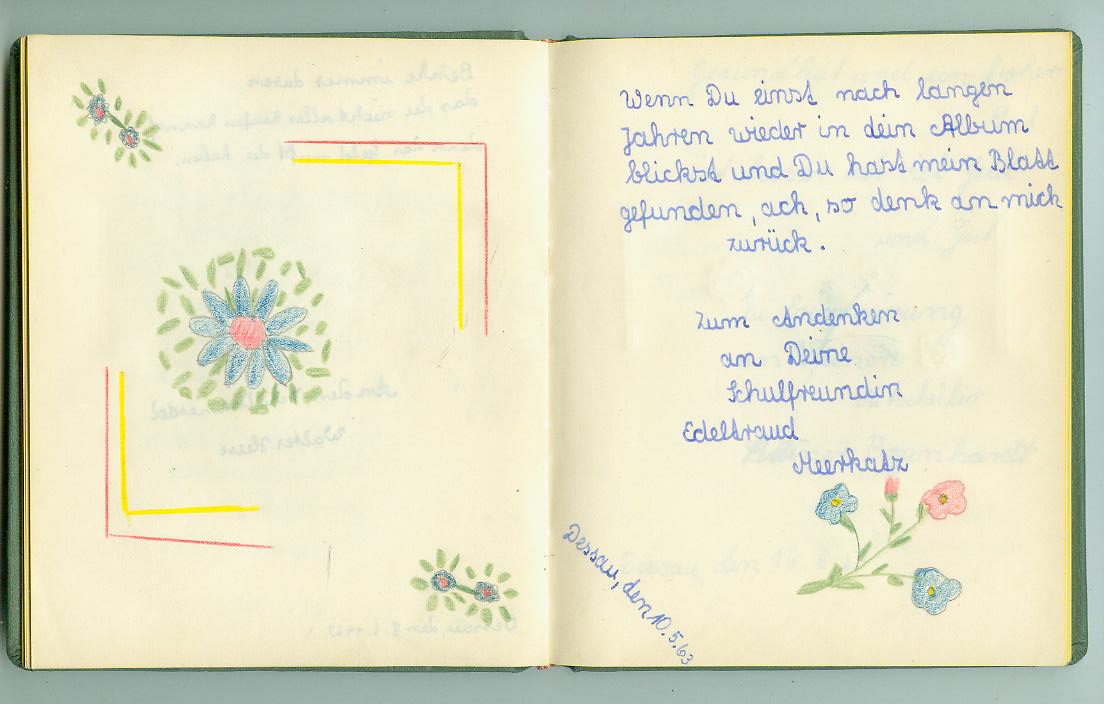 Wenn Du einst nach langen
Jahren wieder in dein Album
blickst und Du hast mein Blatt
gefunden, ach, so denk an mich
zurück.
Zum Andenken
an Deine
Schulfreundin
Edeltraud
Meerkatz
Dessau, den 10.5.63